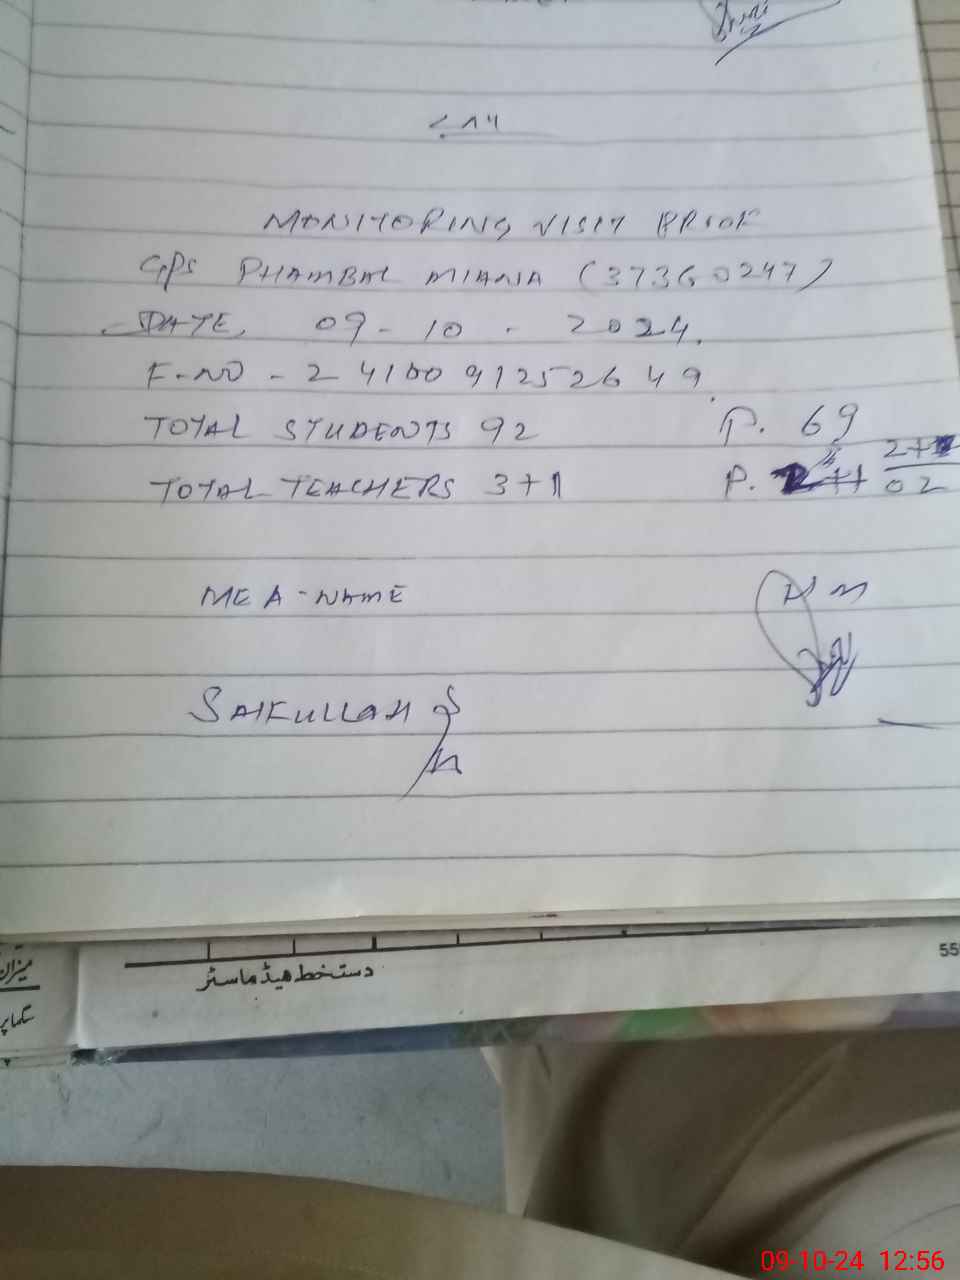 MONITORING VISIT PROOF
GPS PHAMBAL MIANA (37360247)
DATE, 09-10-2024.
F-NO - 2410091252649
TOTAL STUDENTS 92 P. 69
TOTAL TEACHERS 3+1 P. 02
MEA-NAME HM
SAIFULLAH
دستخط ہیڈ ماسٹر
میزان
55
09-10-24 12:56